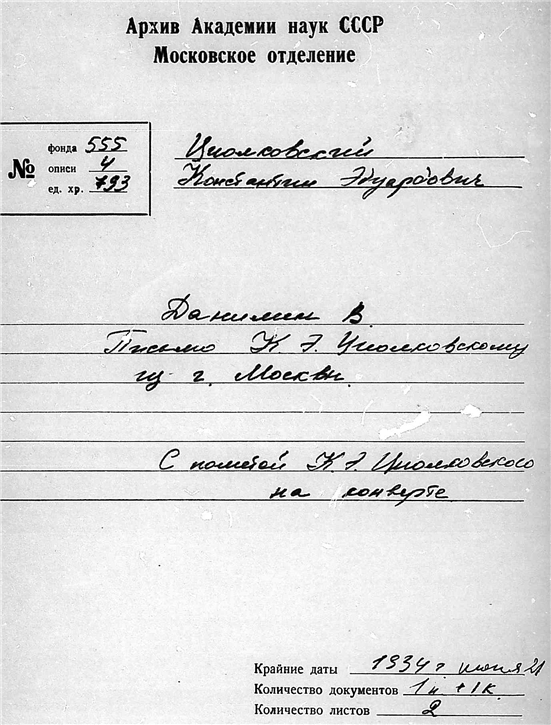 Архив Академии наук СССР
Московское отделение
№
фонда 555
описи 4
ед. хр. 793
Циолковский
Константин Эдуардович
Данилин В.
Письмо К. Э. Циолковскому
из г. Москвы.
С пометой К. Э. Циолковского
на конверте
Крайние даты 1934 г. июня 21
Количество документов 1 п + 1 к.
Количество листов 2